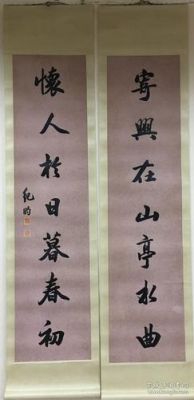 寄興在山亭水曲
懷人於日暮春初
紀昀